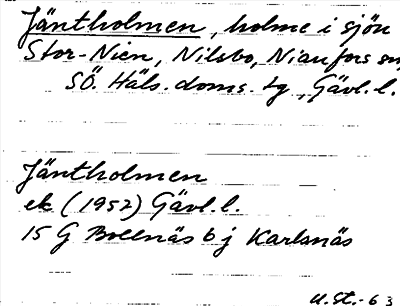 Jäntholmen, holme i sjön
Stor-Nien, Nilsbo, Nianfors sn,
SÖ. Häls. doms. tg, Gävl. l.
Jäntholmen
ek (1952) Gävl. l.
15 G Bollnäs 6 j Karlsnäs
U.St.-63